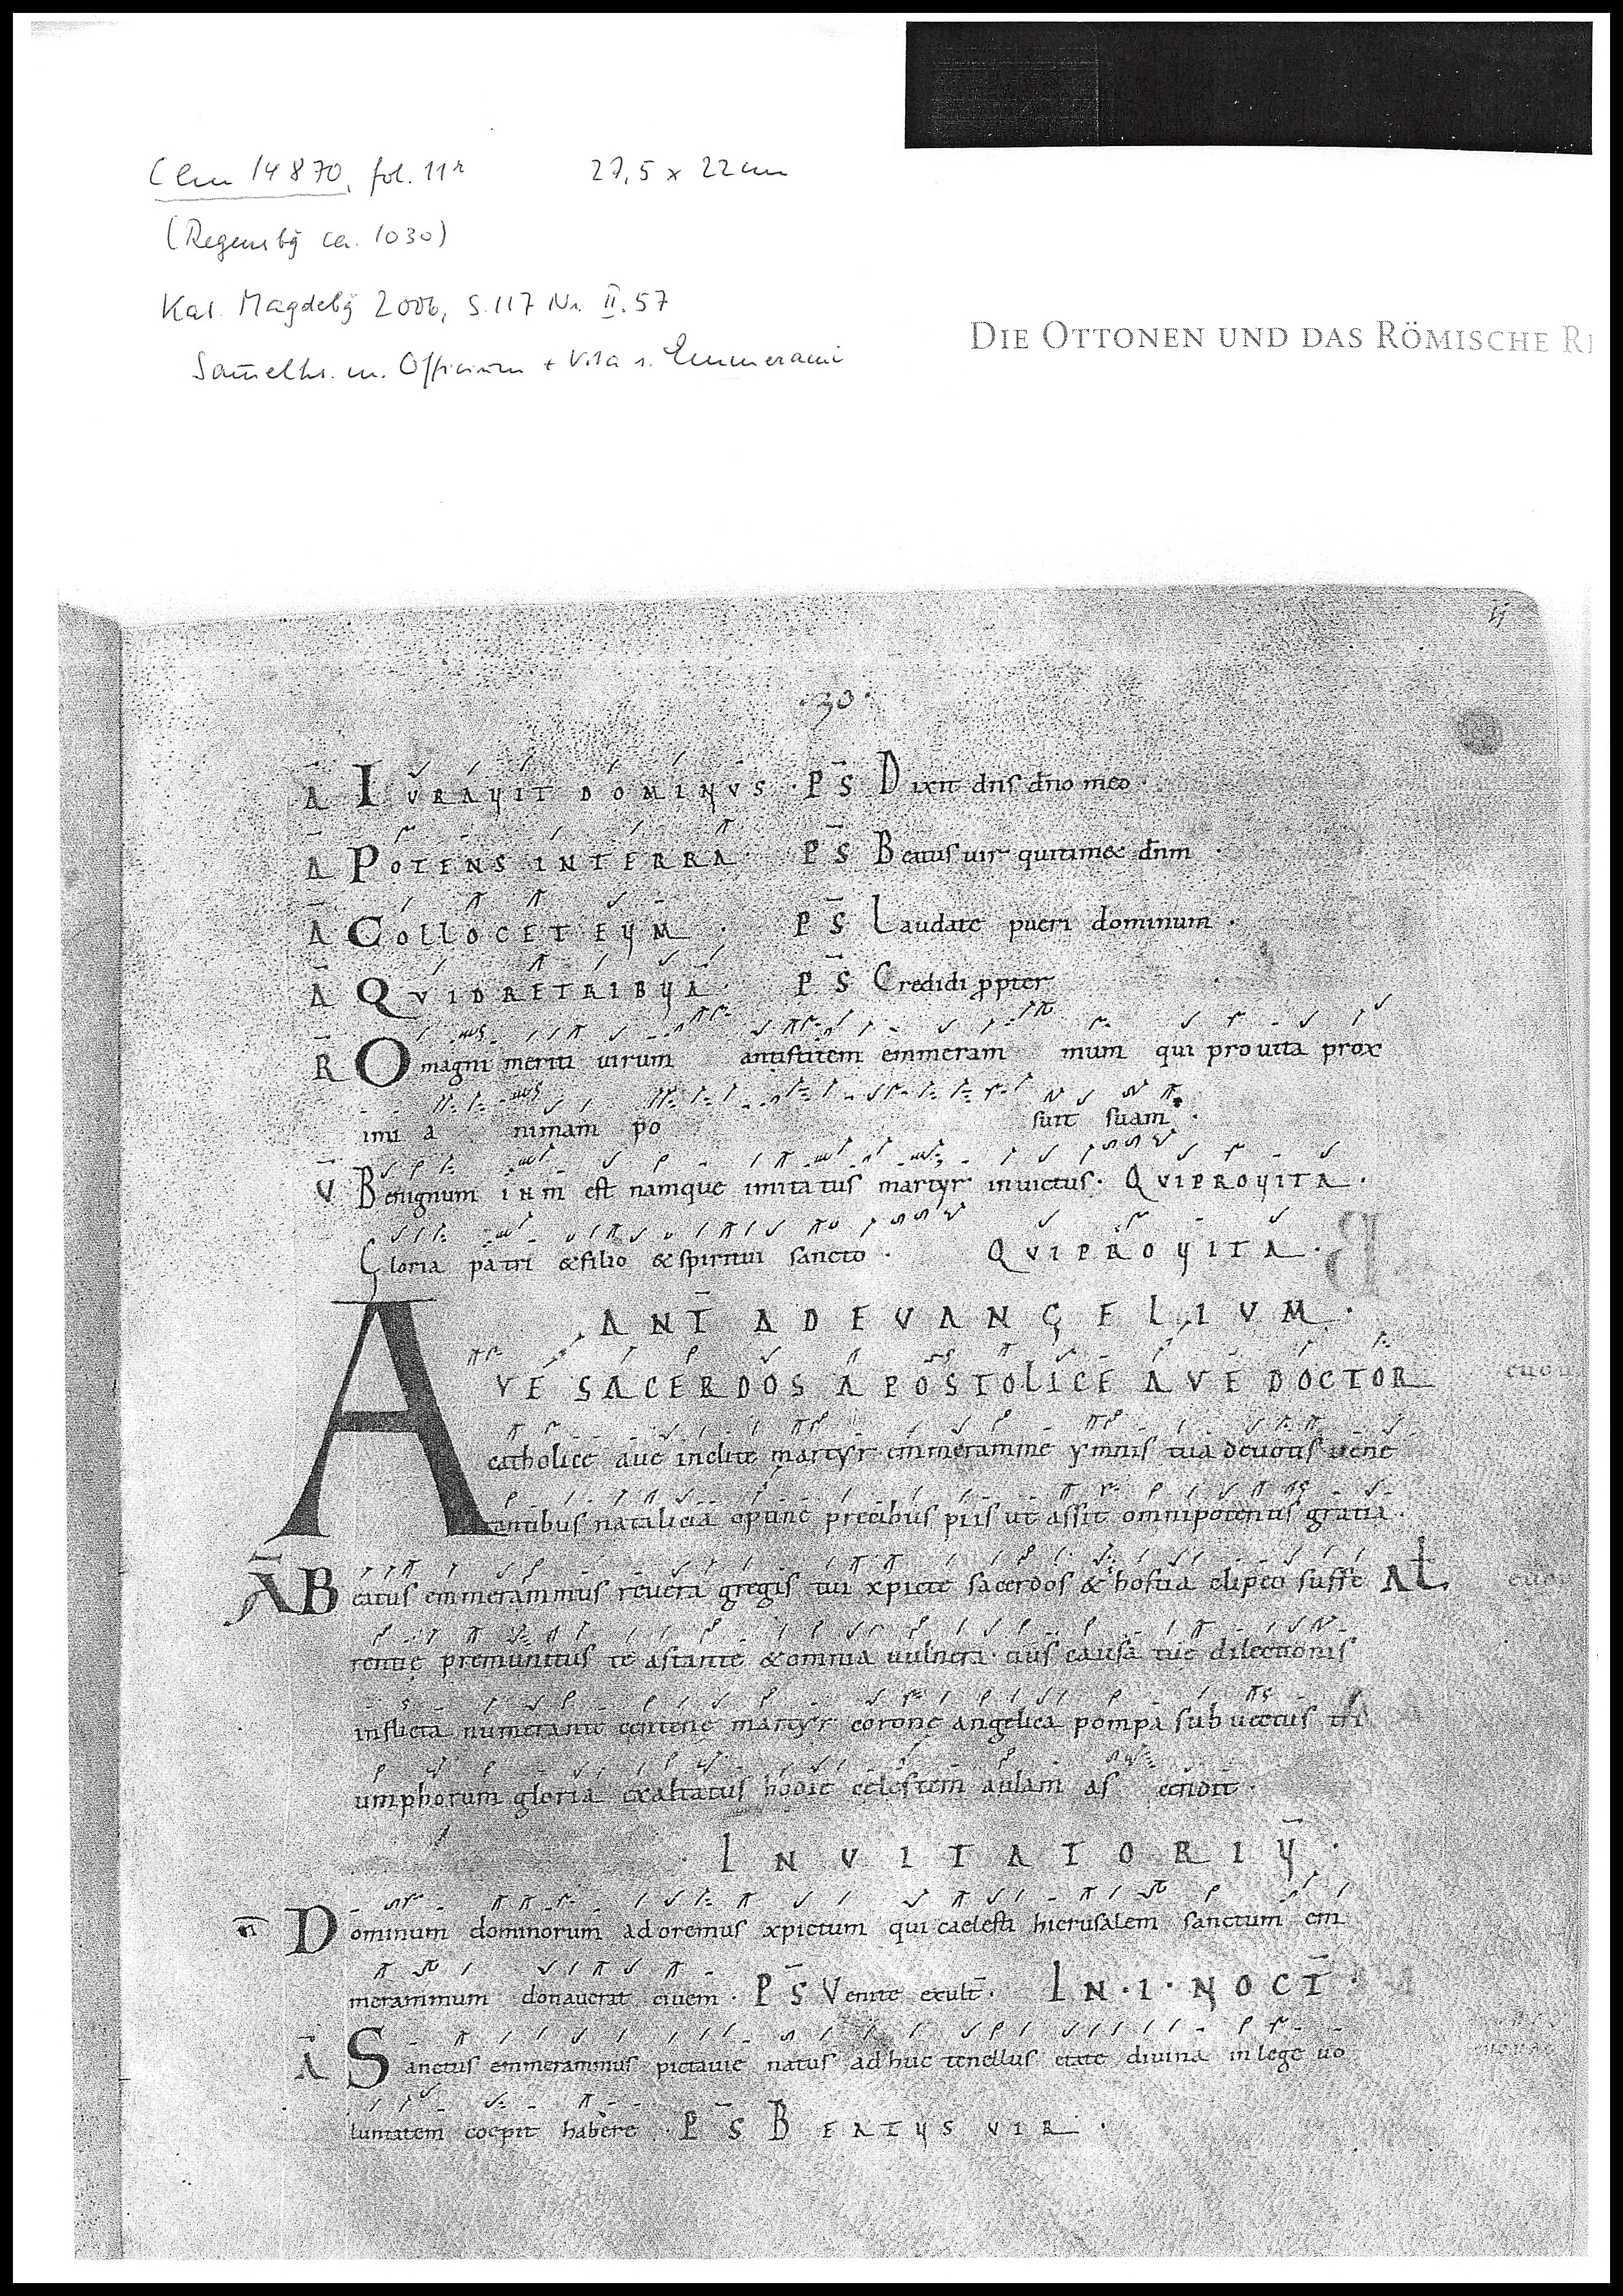 Clm 14870, fol. 11r 27,5 x 22 cm
(Regensbg ca. 1030)
Kat. Magdebg 2006, S. 117 Nr. II.57
Sam̄elhs. m. Officium + Vita s. Emmerami
DIE OTTONEN UND DAS RÖMISCHE R
11
·30·
Ā IURAUIT DOMINUS · PS̄ Dixit dn̄s dn̄o meo ·
Ā POTENS IN TERRA · PS̄ Beatus uir qui timet dn̄m ·
Ā COLLOCET EUM · PS̄ Laudate pueri dominum ·
Ā QUID RETRIBUA · PS̄ Credidi ꝓpter
R O magni meriti uirum antistitem emmeram mum qui pro uita prox
imi a nimam po suit suam ·
V̄ Benignum ihm̄ est namque imitatus martyr inuictus · QUI PRO UITA ·
Gloria patri & filio & spiritui sancto · QUI PRO UITA ·
ANT̄ AD EVANGELIUM ·
AVE SACERDOS APOSTOLICE AVE DOCTOR
catholice aue inclite martyr emmeramme ymnis tua deuotis uene
rantibus natalicia optine precibus piis ut assit omnipotentis gratia ·
Ā Beatus emmerammus reuera gregis tui xpicte sacerdos & hostia clipeo suffe At
rentię premunitus te astante & omnia uulnera eius causa tuę dilectionis
inflicta numerante centene martyr coronę angelica pompa subuectus tri
umphorum gloria exaltatus hodie celestem aulam as cendit ·
INUITATORIU ·
Dominum dominorum adoremus xpictum qui caelesti hierusalem sanctum em
merammum donauerat ciuem · PS̄ Venite exult̄ · IN · I · NOCT̄ ·
Ā Sanctus emmerammus pictauie natus adhuc tenellus etate diuina in lege uo
luntatem coepit habere · PS̄ BEATUS UIR ·